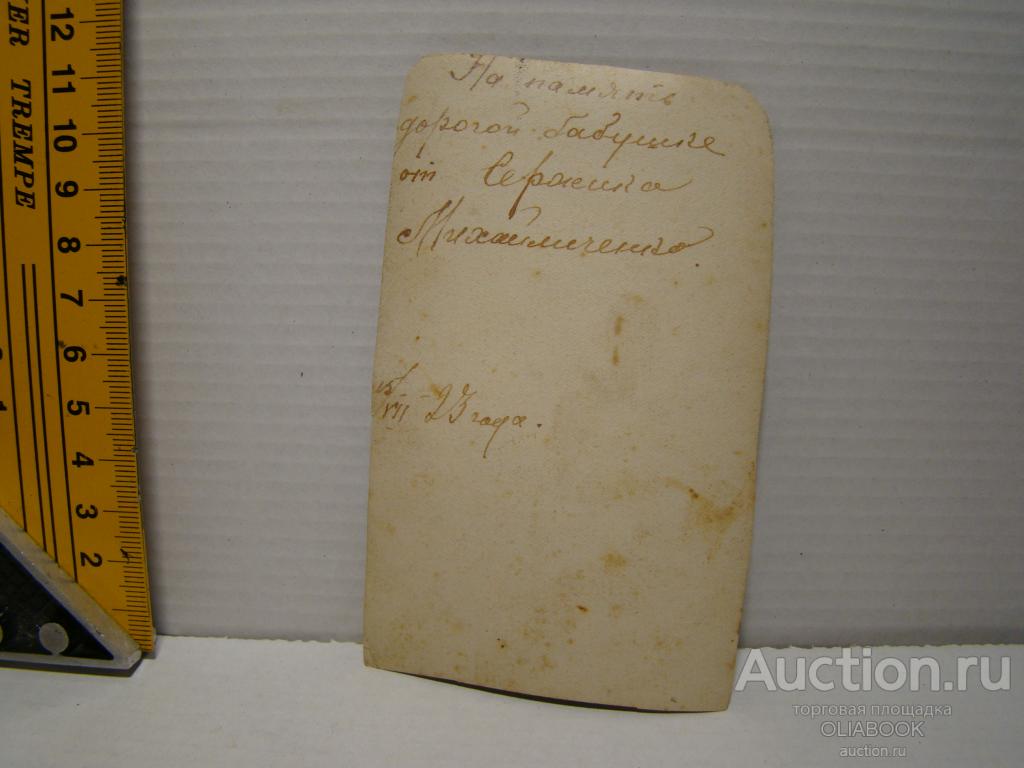 12
11
10
9
8
7
6
5
4
3
2
TREMPE
На память
дорогой бабушке
от Сержика
Михайличенко.
VII 23 года.
Auction.ru
торговая площадка
OLIABOOK
auction.ru